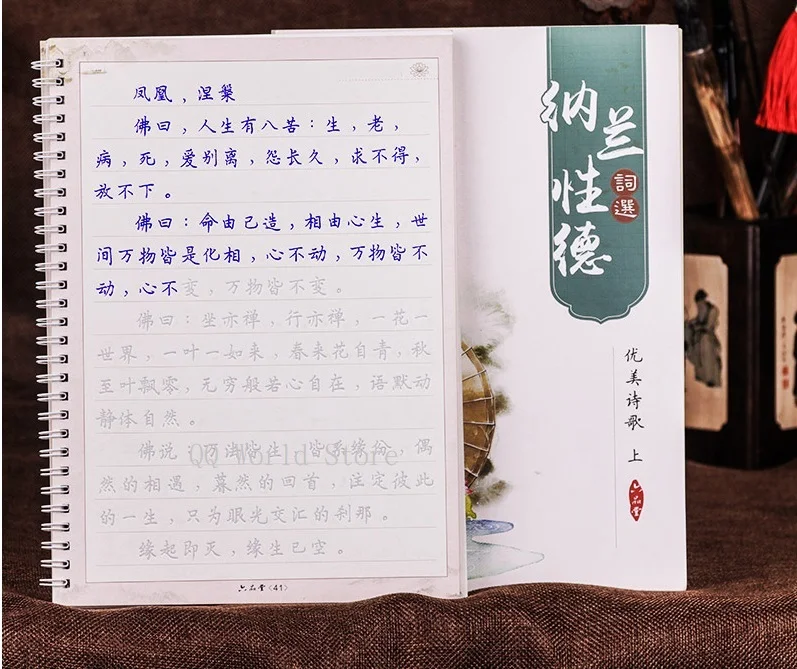 凤凰，涅槃
佛曰，人生有八苦：生，老，
病，死，爱别离，怨长久，求不得，
放不下。
佛曰：命由己造，相由心生，世
间万物皆是化相，心不动，万物皆不
动，心不变，万物皆不变。
佛曰：坐亦禅，行亦禅，一花一
世界，一叶一如来，春来花自青，秋
至叶飘零，无穷般若心自在，语默动
静体自然。
佛说，万法皆生，皆系缘份，偶
然的相遇，蓦然的回首，注定彼此
的一生，只为眼光交汇的刹那。
缘起即灭，缘生已空。
六品堂〈41〉
QQ World Store
纳兰性德
詞選
优美诗歌 上
六品堂